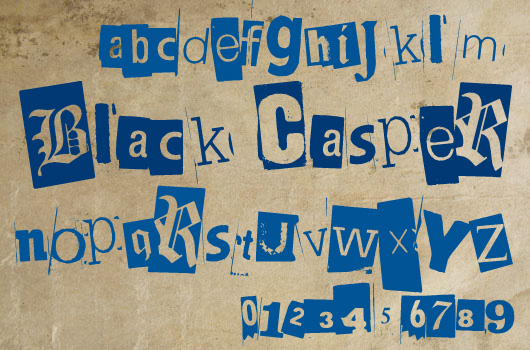 abcdefghijkl'm
Black Casper
nopqRstUvwxYZ
0123456789